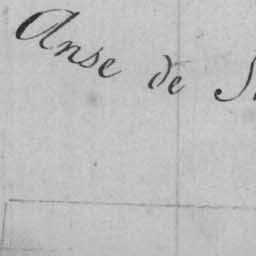 Anse de